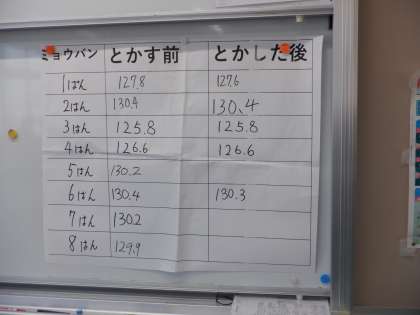 ミョウバン とかす前 とかした後
1はん 127.8 127.6
2はん 130.4 130.4
3はん 125.8 125.8
4はん 126.6 126.6
5はん 130.2
6はん 130.4 130.3
7はん 130.2
8はん 129.9